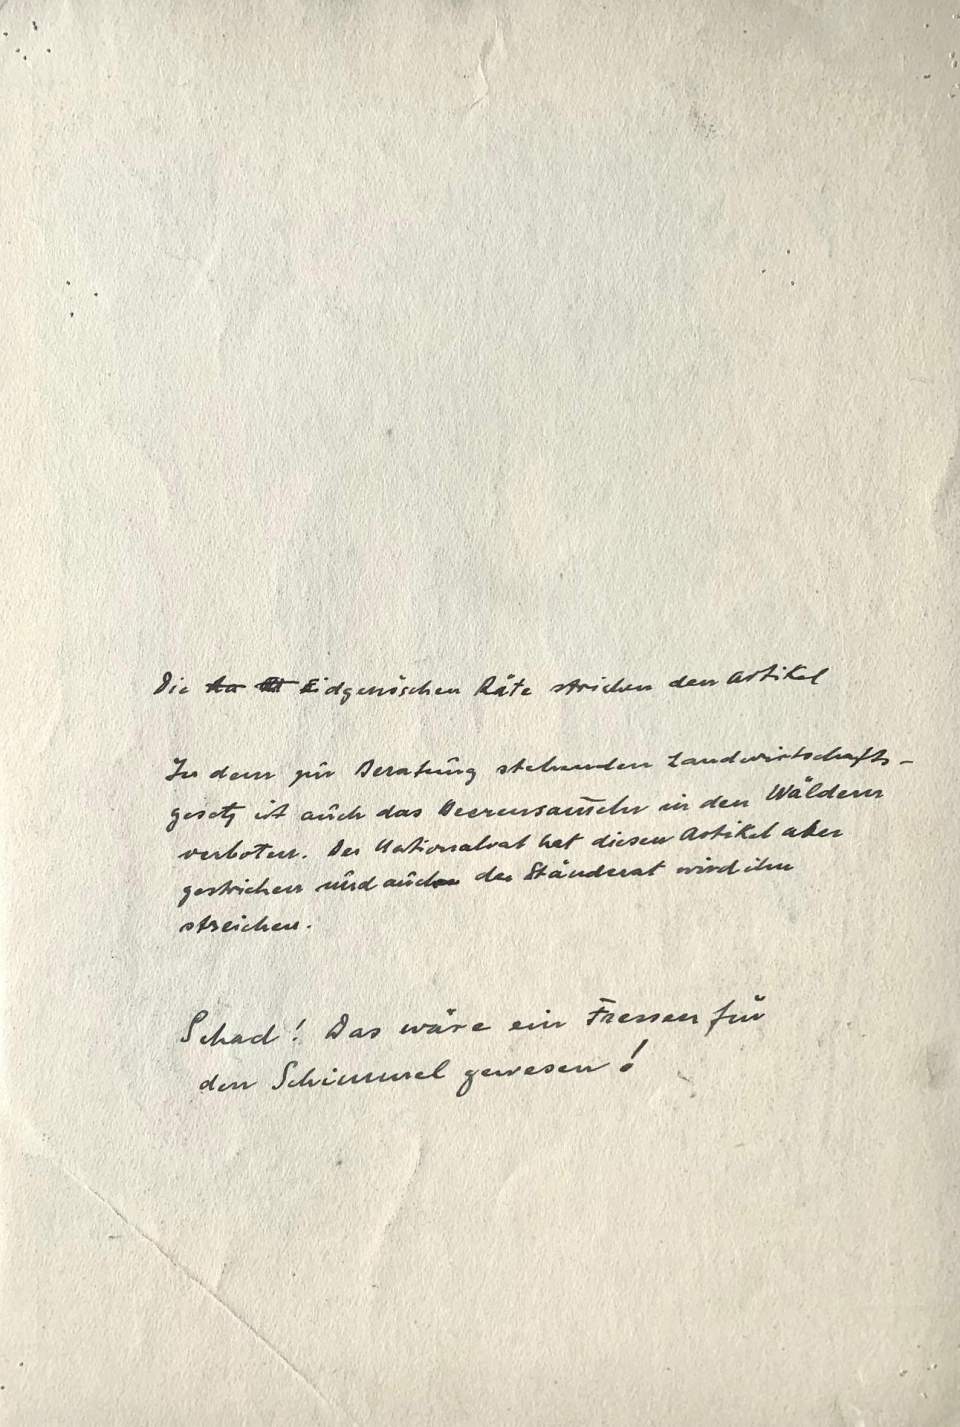 Die Eidgenöschen Räte strichen den Artikel
In dem zur Beratung stehenden Landwirtschafts-
gesetz ist auch das Beerensam̄eln in den Wäldern
verboten. Der Nationalrat hat diesen Artikel aber
gestrichen und auch der Ständerat wird ihn
streichen.
Schad! Das wäre ein Fressen für
den Schimmel gewesen!